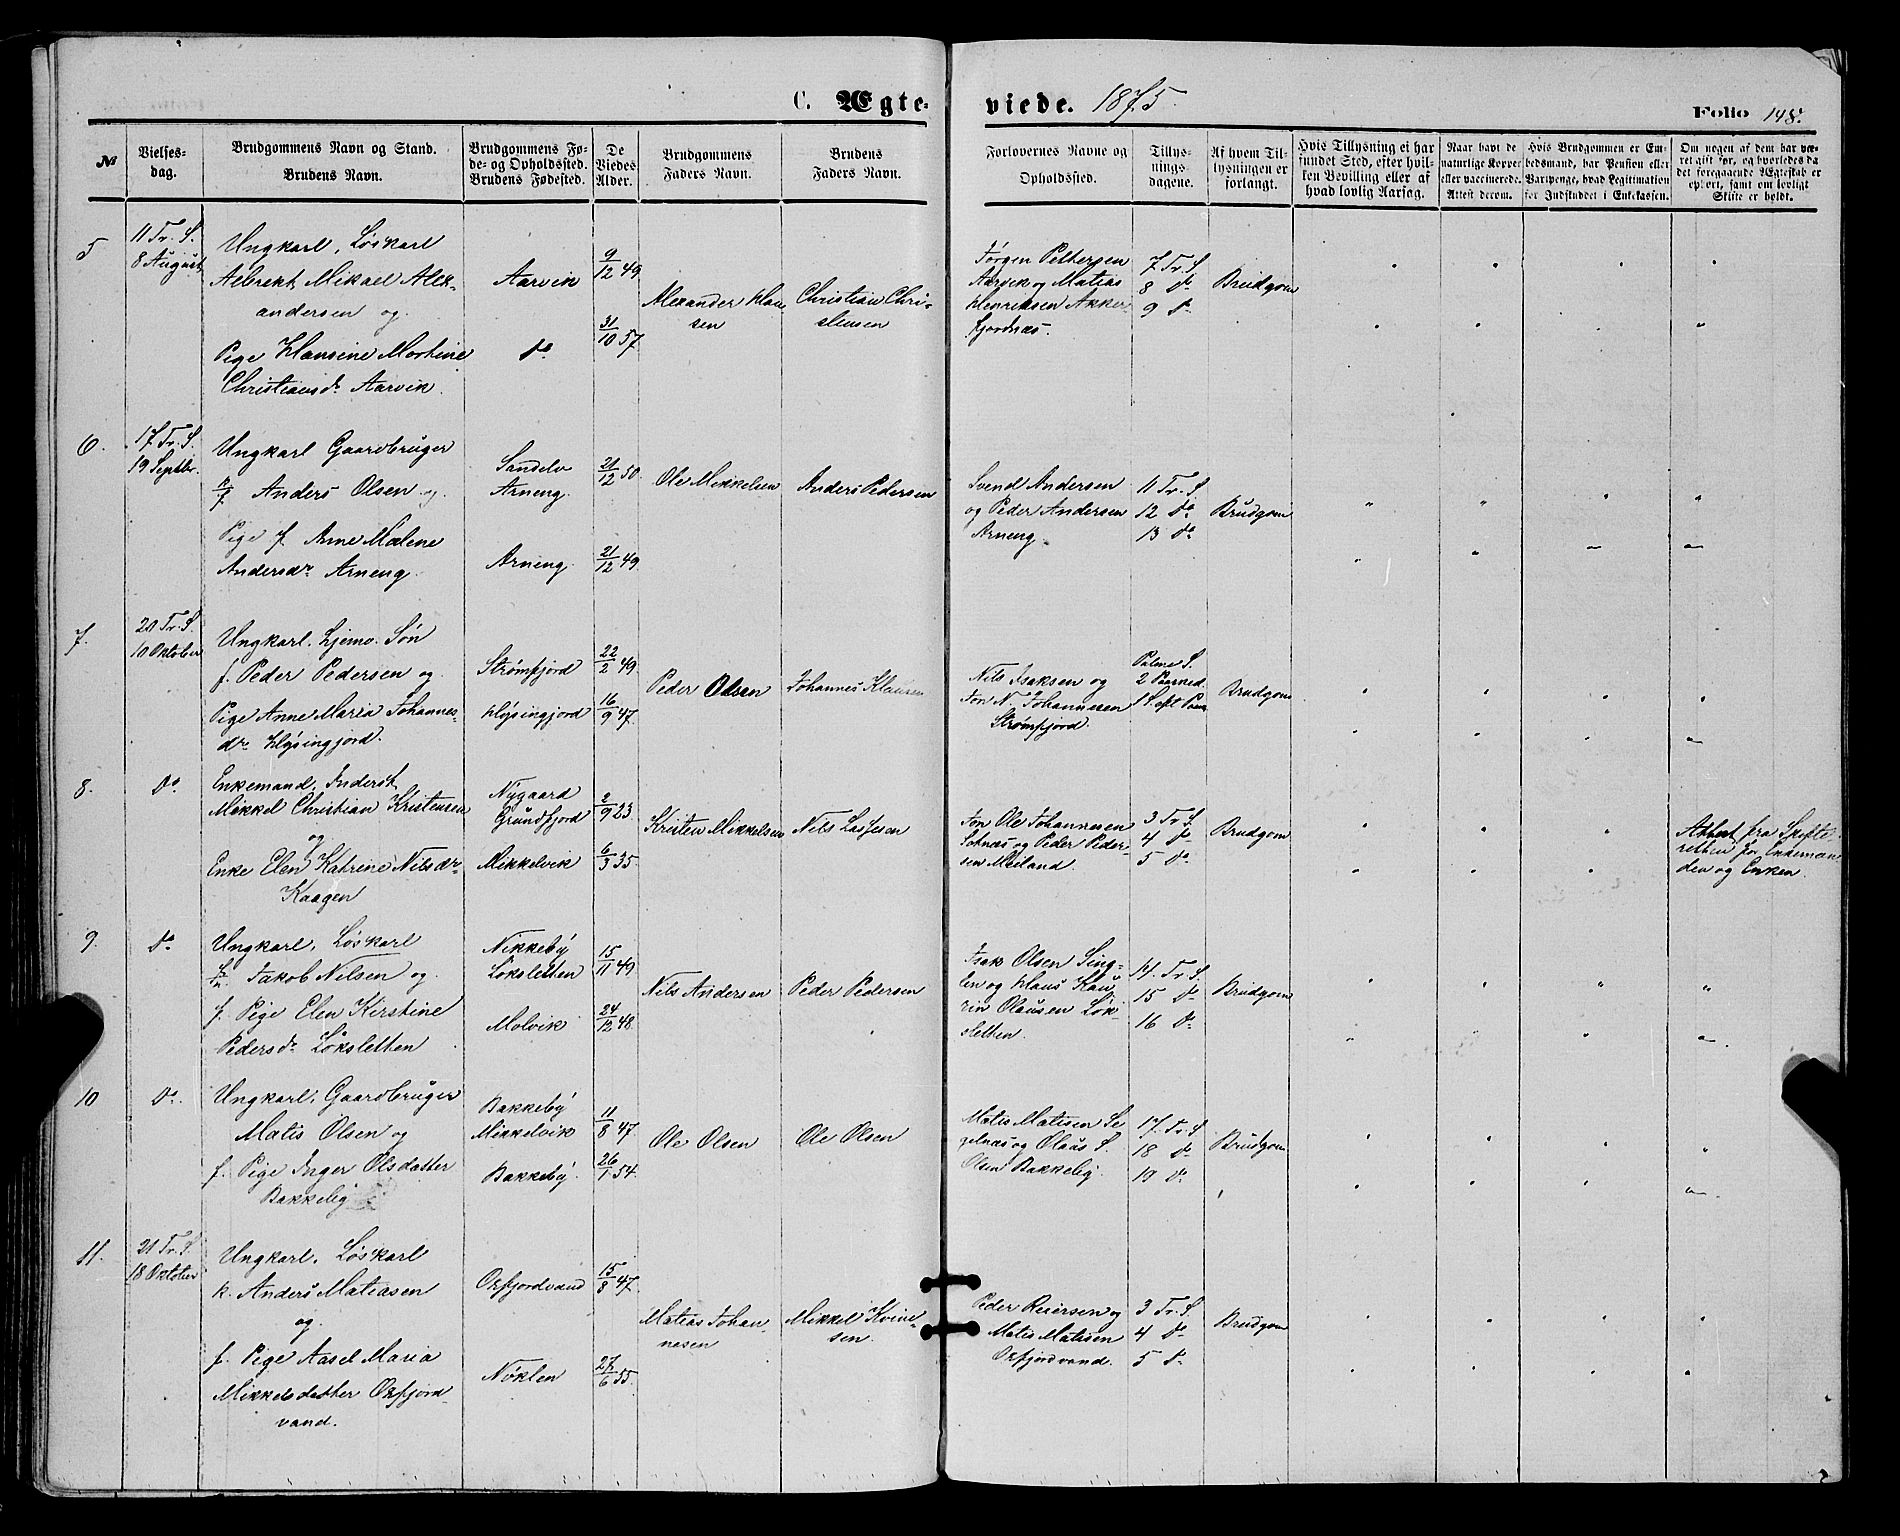 C. Ægte-
viede. 1875.
Folio 148.
№
Vielses-
dag.
Brudgommens Navn og Stand.
Brudens Navn.
Brudgommens Fø-
de- og Opholdssted.
Brudens Fødested.
De
Viedes
Alder.
Brudgommens
Faders Navn.
Brudens
Faders Navn.
Forlovernes Navne og
Opholdssted.
Tillys-
nings-
dagene.
Af hvem Til-
lysningen er
forlangt.
Hvis Tillysning ei har
fundet Sted, efter hvil-
ken Bevilling eller af
hvad lovlig Aarsag.
Naar havt de
naturlige Kopper
eller vaccinerede.
Attest derom.
Hvis Brudgommen er Em-
bedsmand, har Pension eller
Vartpenge, hvad Legitimation
for Indskuddet i Enkekassen.
Om nogen af dem har væ-
ret gift før, og hvorledes da
det foregaaende Ægteskab er
ophørt, samt om lovligt
Skifte er holdt.
5
11 Tr. S.
8 August
Ungkarl, Løskarl
Aebrekt Mikael Alex-
andersen og
Pige Hansine Martine
Christiansdr Aarvik.
Aarvik
do
9/12 49
31/10 57
Alexander Han
sen
Christian Chri-
stensen
Jørgen Pettersen
Aarvik og Matias
Henriksen Akker
fjordnæs.
7 Tr. S.
8 do
9 do
Brudgom
6.
17 Tr. S.
19 Septbr.
Ungkarl Gaardbruger
Anders Olsen og
Pige f. Anne Malene
Andersdr Arneng.
Sandelv
Arneng.
Arneng.
21/12 50.
21/12 49.
Ole Mikkelsen
Anders Pedersen
Svend Andersen
og Peder Andersen
Arneng.
11 Tr. S.
12 do
13 do
Brudgom
7.
20 Tr. S.
10 Oktober
Ungkarl, hjemv. Søn
f. Peder Pedersen og
Pige Anne Maria Johannes-
dr Hysingjord.
Strømfjord
Hysingjord
22/2 49.
16/9 47.
Peder Olsen
Johannes Klausen
Nils Isaksen og
Jon N. Johannesen
Strømfjord.
Palme S.
Brudgom
8.
do
Enkemand, Inderst
Mikkel Christian Kristensen
og
Enke Elen Katrine Nilsdr
Kaagen
Nygaard
Grundfjord
Mikkelvik
2/9 23.
6/3 35
Kristen Mikkelsen
Nils Lassesen
Jon Ole Johannesen
Sotnæs og Peder Peder-
sen Meiland.
3 Tr. S.
4 do
5 do
Brudgom
Attest fra Skifte-
retten for Enkeman
den og Enken.
9.
do
Ungkarl, Løskarl
Jakob Nilsen og
f. Pige Elen Kirstine
Pedersdr Løksletten
Nikkeby
Løksletten
Molvik
15/11 49
24/12 48.
Nils Andersen
Peder Pedersen
Isak Olsen Sing-
len og Hans Kau
rin Olausen Løk-
sletten.
14. Tr. S.
15 do
16 do
Brudgom
10
do.
Ungkarl, Gaardbruger
Matis Olsen og
f. Pige Inger Olsdatter
Bakkeby
Bakkeby
Mikkelvik
Bakkeby.
11/8 47.
26/1 54.
Ole Olsen
Ole Olsen
Matis Matisen Se
gelnæs og Olaus S.
Olsen Bakkeby.
17. Tr. S.
18 do
19 do
Brudgom
11.
21 Tr. S.
18 Oktober
Ungkarl, Løskarl
k. Anders Matiasen
og
f. Pige Aasel Maria
Mikkelsdatter Oxfjord
vand.
Oxfjordvand
Nøklen
15/8 47.
27/6 55.
Matias Johan-
nesen
Mikkel Kvine-
sen.
Peder Reiersen og
Matis Matisen
Oxfjordvand.
3 Tr. S.
4 do
5 do
Brudgom